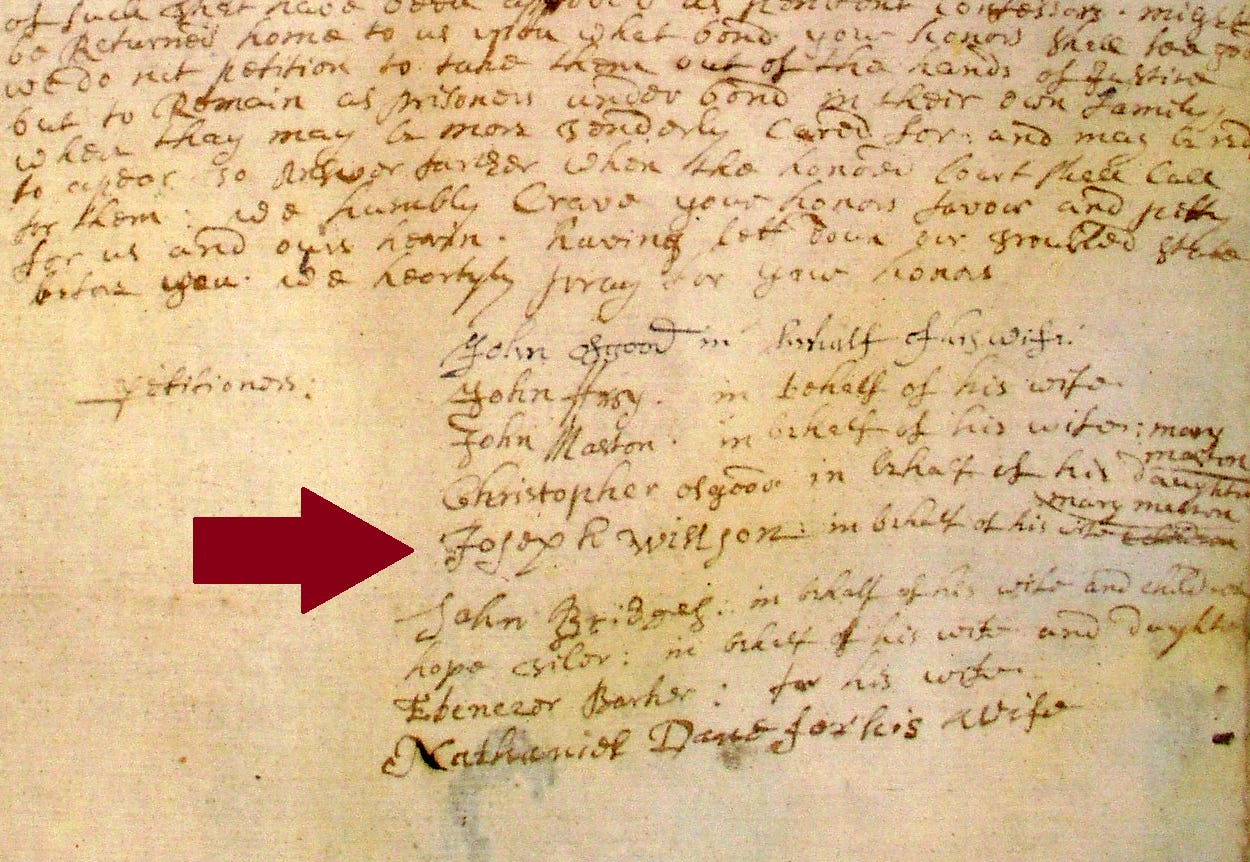 of such that have been approved as penitent confessors. might
be Returned home to us upon what bond your honors shall see
we do not petition to take them out of the hands of Justice
but to Remain as prisoners under bond in their own family
where thay may be more tenderly cared for: and may be red
to apear to Answer farther when the honored Court shall Call
for them: We humbly Crave your honors favour and pitty
for us and ours herein. having sett down our troubled state
before you. We heartyly pray for your honors
petitioners:
John Osgood in behalf of his wife:
John ffry. in behalf of his wife
John Marston. in behalf of his wife: mary
marston
Christopher osgood in behalf of his daughter
mary marston
Joseph willson: in behalf of his wife
John Bridges: in behalf of his wife and children
hope tiler: in behalf of his wife and daughter
Ebenezer Barker: for his wife
Nathaniel Dane for his wife